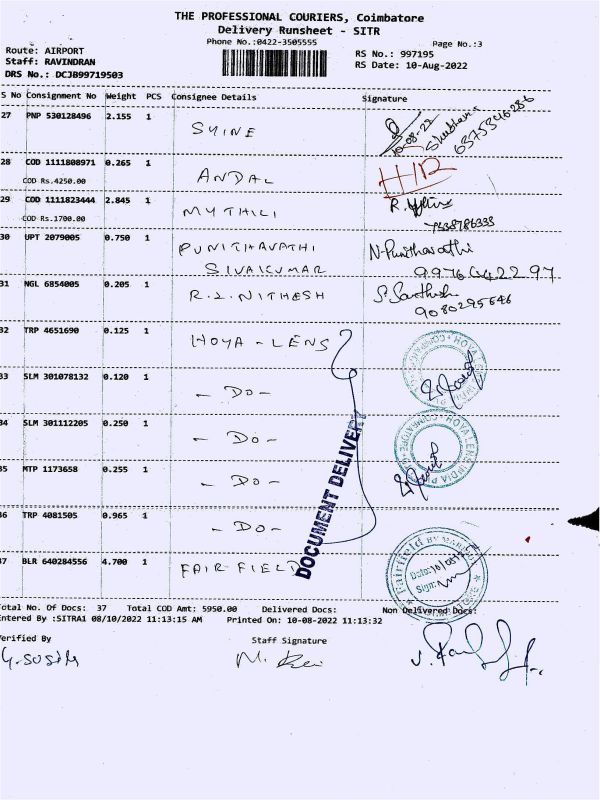 THE PROFESSIONAL COURIERS, Coimbatore
Delivery Runsheet - SITR
Phone No.:0422-3505555
Page No.:3
Route: AIRPORT
Staff: RAVINDRAN
DRS No.: DCJB99719503
RS No.: 997195
RS Date: 10-Aug-2022
S No Consignment No Weight PCS Consignee Details Signature
27 PNP 530128496 2.155 1 SHINE 10-08-22 6375346286
28 COD 1111808971 0.265 1 ANDAL H/R
COD Rs.4250.00
29 COD 1111823444 2.845 1 MYTHILI R.
COD Rs.1700.00 7538786333
30 UPT 2079005 0.750 1 PUNITHAVATHI N. Punithavathi
SIVAKUMAR 9976442297
31 NGL 6854005 0.205 1 R.S.NITHESH S. Santhosh
9080295646
32 TRP 4651690 0.125 1 HOYA - LENS
33 SLM 301078132 0.120 1 - DO -
34 SLM 301112205 0.250 1 - DO -
35 MTP 1173658 0.255 1 - DO -
36 TRP 4081505 0.965 1 - DO -
37 BLR 640284556 4.700 1 FAIR FIELD
DOCUMENT DELIVERY
HOYA LENS INDIA
HOYA LENS INDIA
Fairfield BY MARRIOTT
Date: 10/08/
Sign:
Total No. Of Docs: 37 Total COD Amt: 5950.00 Delivered Docs: Non Delivered Docs:
Entered By :SITRA1 08/10/2022 11:13:15 AM Printed On: 10-08-2022 11:13:32
Verified By Staff Signature